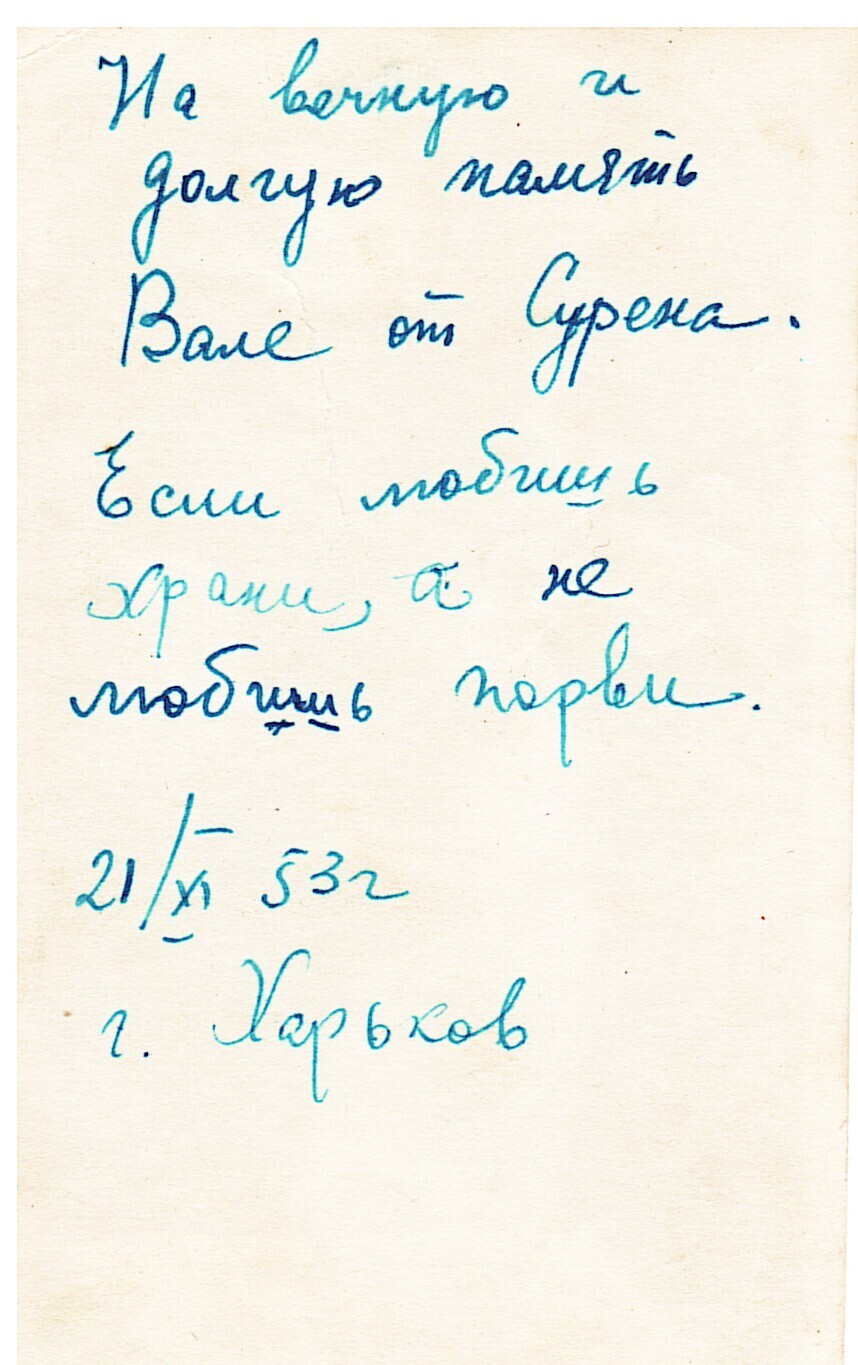 На вечную и
долгую память
Вале от Сурена.
Если любишь
храни, а не
любишь порви.
21/XI 53г
г. Харьков